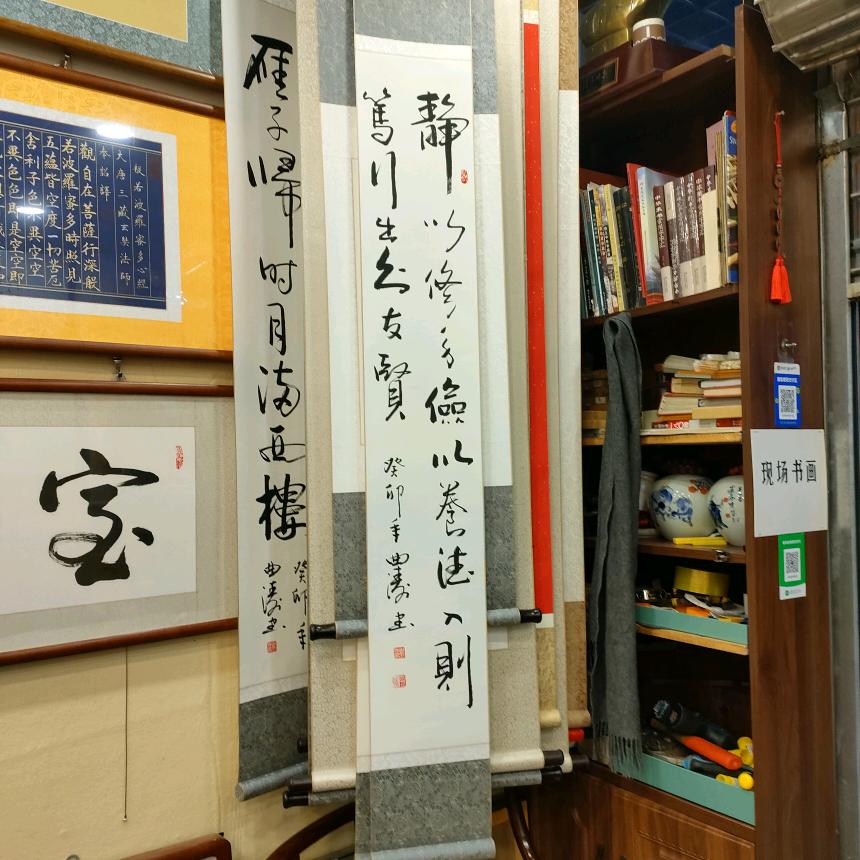 般若波羅蜜多心經
大唐三藏玄奘法師
奉詔譯
觀自在菩薩行深般
若波羅蜜多時照見
五蘊皆空度一切苦厄
舍利子色不異空空
不異色色即是空空即
雁子歸时月满西樓
癸卯年
曲涛书
静以修身儉以養德入則
篤行出则友賢
癸卯年曲涛书
现场书画